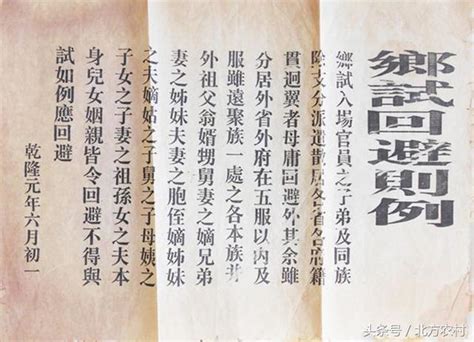 鄉試回避則例
鄉試入場官員之子弟及同族
除支分派遣散居各省各府籍
貫迴翼者母庸回避外其余雖
分居外省外府在五服以内及
服雖遠聚族一處之各本族并
外祖父翁婿甥舅妻之嫡兄弟
妻之姊妹夫妻之胞侄嫡姊妹
之夫嫡姑之子舅之子母姨之
子女之子妻之祖孫女之夫本
身兒女姻親皆令回避不得與
試如例應回避
乾隆元年六月初一
头条号 / 北方农村